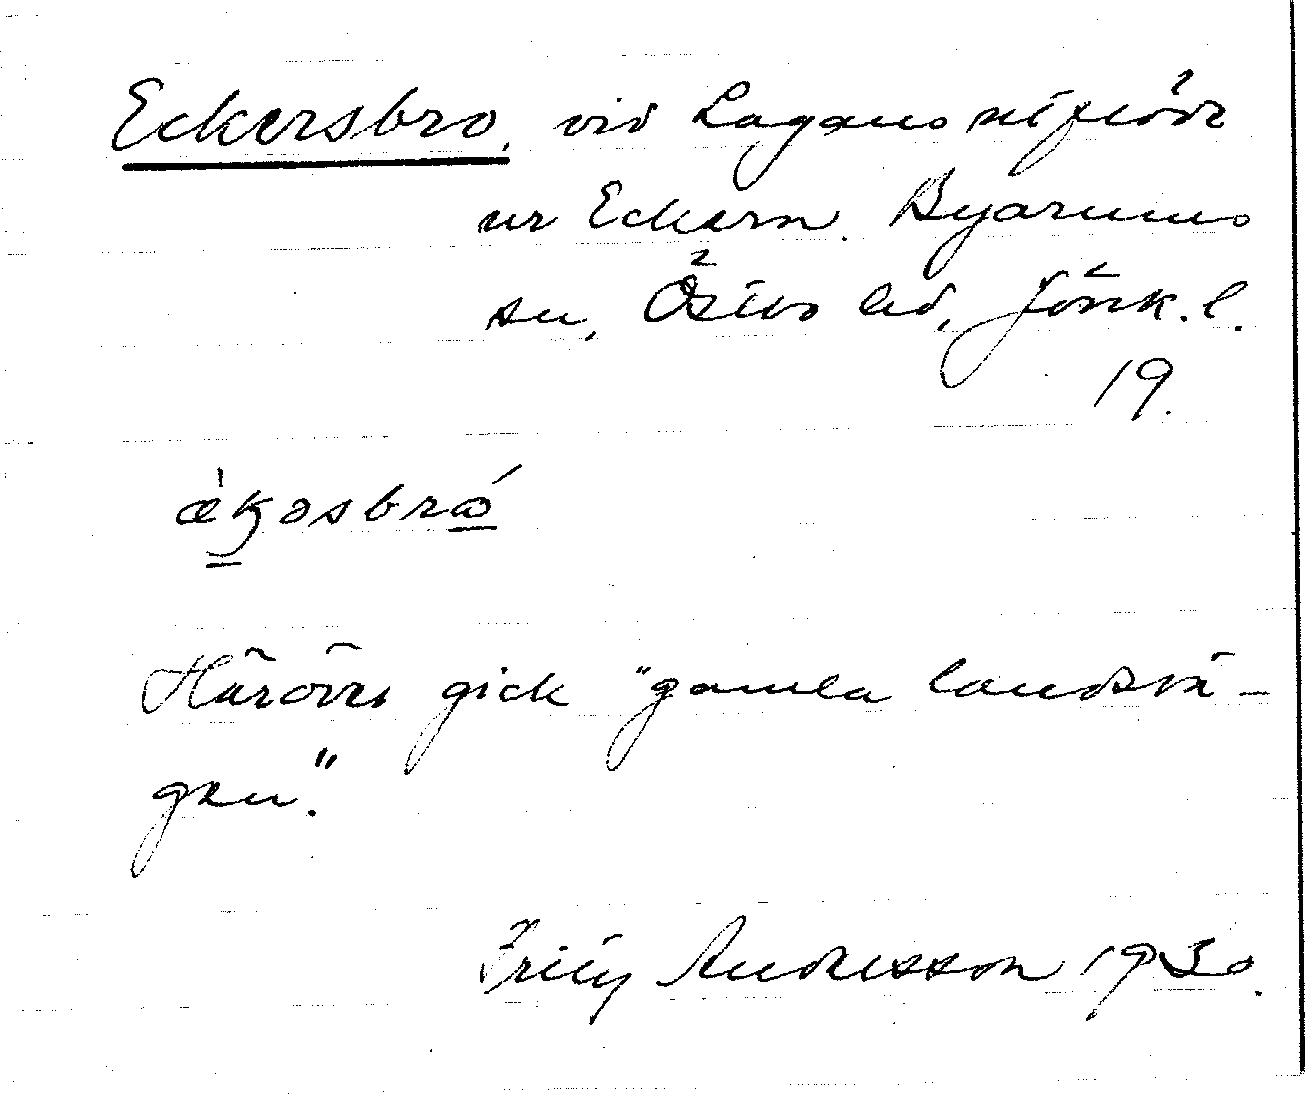 Eckersbro, vid Lagans utflöde
ur Eckern. Byarums
sn, Östbo hd, Jönk. l.
19.
Häröver gick "gamla landsvä-
gen."
Andersson 1930.